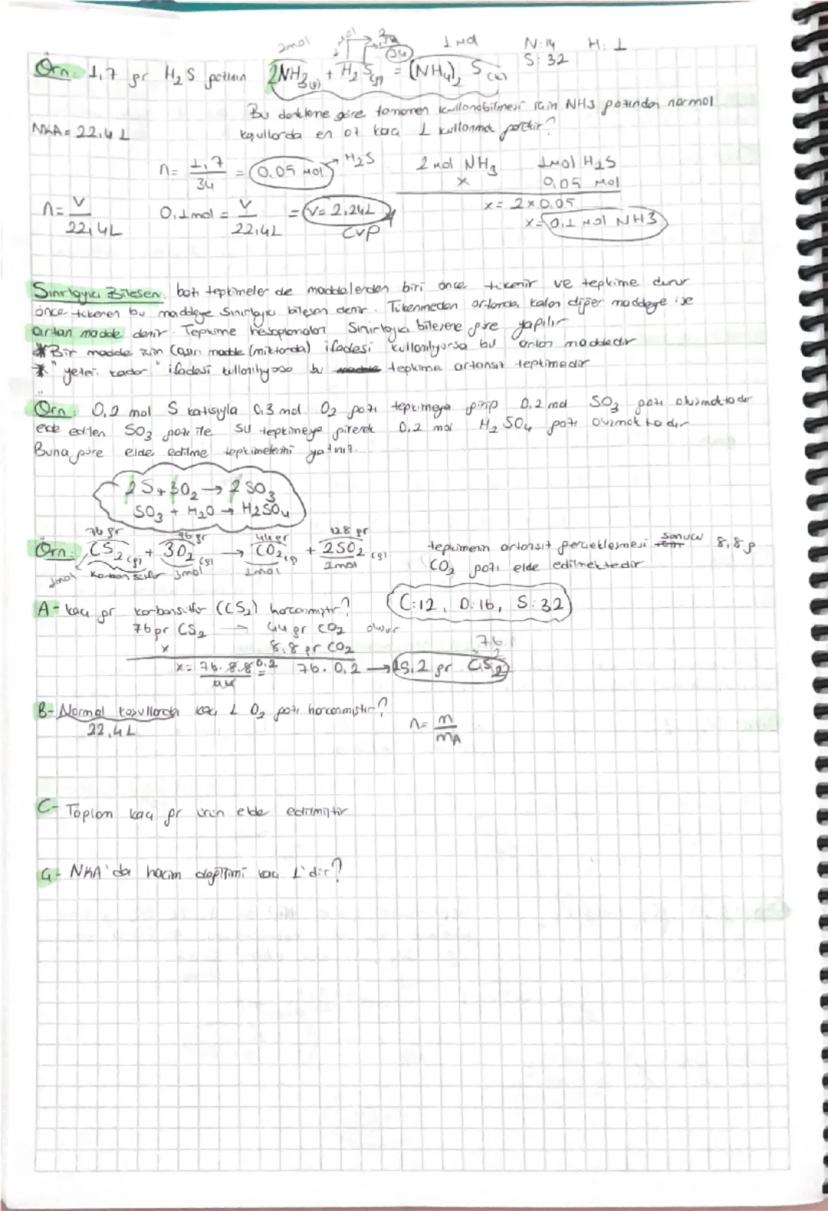 2mol 1 mol N: 14 H: 1
34 S: 32
Örn: 1,7 gr H2S gazının 2NH3(g) + H2S(g) = (NH4)2 S(k)
Bu denkleme göre tamamen kullanabilmesi için NH3 gazından normal
NKA = 22,4 L koşullarda en az kaç L kullanmak gerekir?
n = 1,7 / 34 = 0,05 mol H2S 2 mol NH3 1mol H2S
x 0,05 mol
n = V / 22,4L 0,1mol = V / 22,4L = V = 2,24L x = 2x0.05
CVP x = 0,1 mol NH3
Sınırlayıcı Bileşen: bazı tepkimeler de maddelerden biri önce tükenir ve tepkime durur
önce tükenen bu maddeye sınırlayıcı bileşen denir. Tükenmeden ortamda kalan diğer maddeye ise
artan madde denir. Tepkime hesaplamaları Sınırlayıcı bileşene göre yapılır
* Bir madde için (aşırı madde (miktarda) ifadesi kullanılıyorsa bu artan maddedir
* "yeteri kadar" ifadesi kullanılıyosa bu tepkime artansız tepkimedir
Örn: 0,2 mol S katısıyla 0,3 mol O2 gazı tepkimeye girip 0,2 mol SO3 gazı oluşmaktadır
elde edilen SO3 gazı ile su tepkimeye girerek 0,2 mol H2SO4 gazı oluşmaktadır
Buna göre elde edilme tepkimelerini yazınız.
2S + 3O2 → 2SO3
SO3 + H2O → H2SO4
76 gr 96 gr 44 gr 128 gr
Örn: CS2(g) + 3O2(g) → CO2(g) + 2SO2(g) tepkimenin artansız gerçekleşmesi sonucu 8,8 g
1mol karbon sülfür 3mol 1mol 2mol CO2 gazı elde edilmektedir
A- kaç gr karbonsülfür (CS2) harcanmıştır? C: 12, O: 16, S: 32
76 gr CS2 44 gr CO2 oluşur
x 8,8 gr CO2
x = 76 . 8,8 / 44 0,2 = 76 . 0,2 → 15,2 gr CS2
B- Normal koşullarda kaç L O2 gazı harcanmıştır?
22,4L n = m / mA
C- Toplam kaç gr ürün elde edilmiştir
Ç- NKA'da hacim değişimi kaç L'dir?